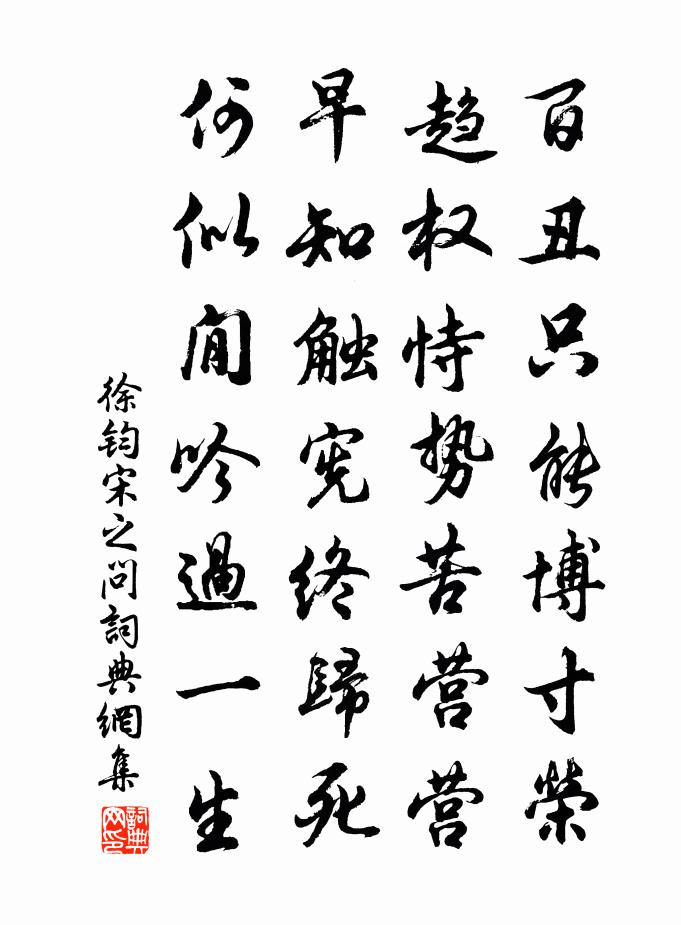 百丑只能博寸榮
趋权恃势苦营营
早知触宪终歸死
何似閒吟過一生
徐钧宋之问詞典網集
詞典网印